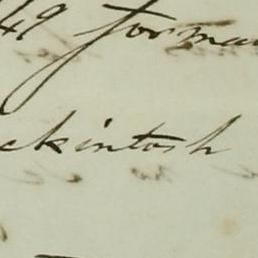 49 forma
ckintosh